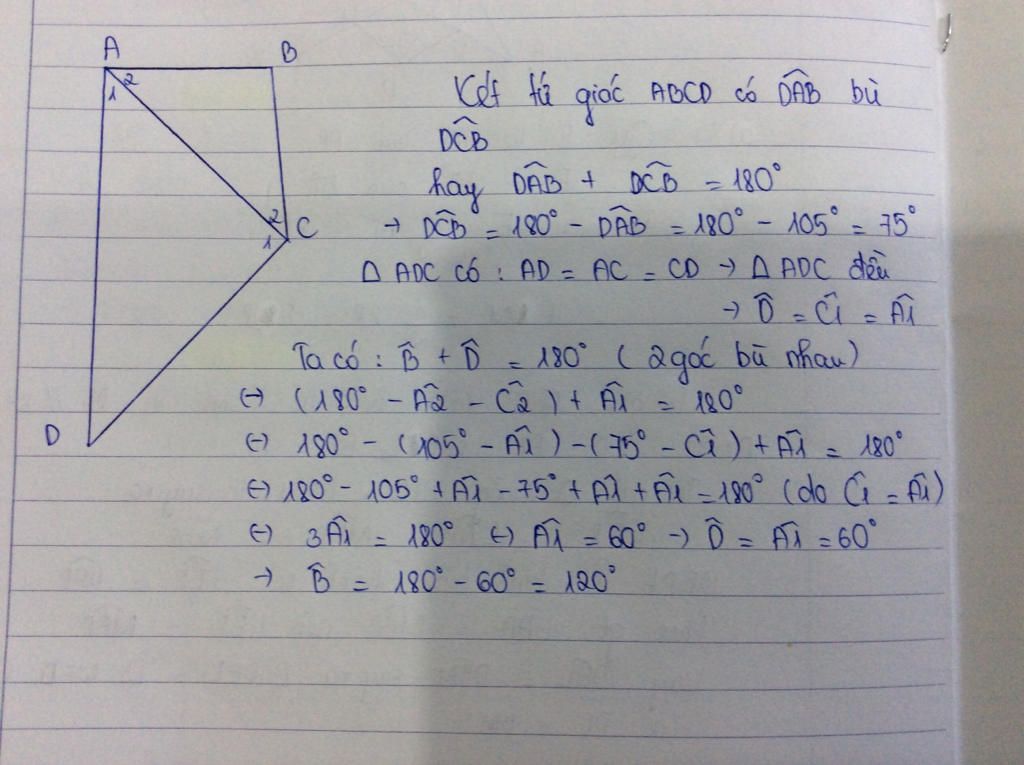 A
B
2
1
2
1
C
D
Xét tứ giác ABCD có D̂AB bù
D̂CB
hay D̂AB + D̂CB = 180°
→ D̂CB = 180° - D̂AB = 180° - 105° = 75°
Δ ADC có : AD = AC = CD → Δ ADC đều
→ D̂ = Ĉ1 = Â1
Ta có : B̂ + D̂ = 180° ( 2 góc bù nhau )
(-) (180° - Â2 - Ĉ2 ) + Â1 = 180°
(-) 180° - (105° - Â1) - (75° - Ĉ1 ) + Â1 = 180°
(-) 180° - 105° + Â1 - 75° + Â1 + Â1 = 180° (do Ĉ1 = Â1)
(-) 3Â1 = 180° (-) Â1 = 60° → D̂ = Â1 = 60°
→ B̂ = 180° - 60° = 120°